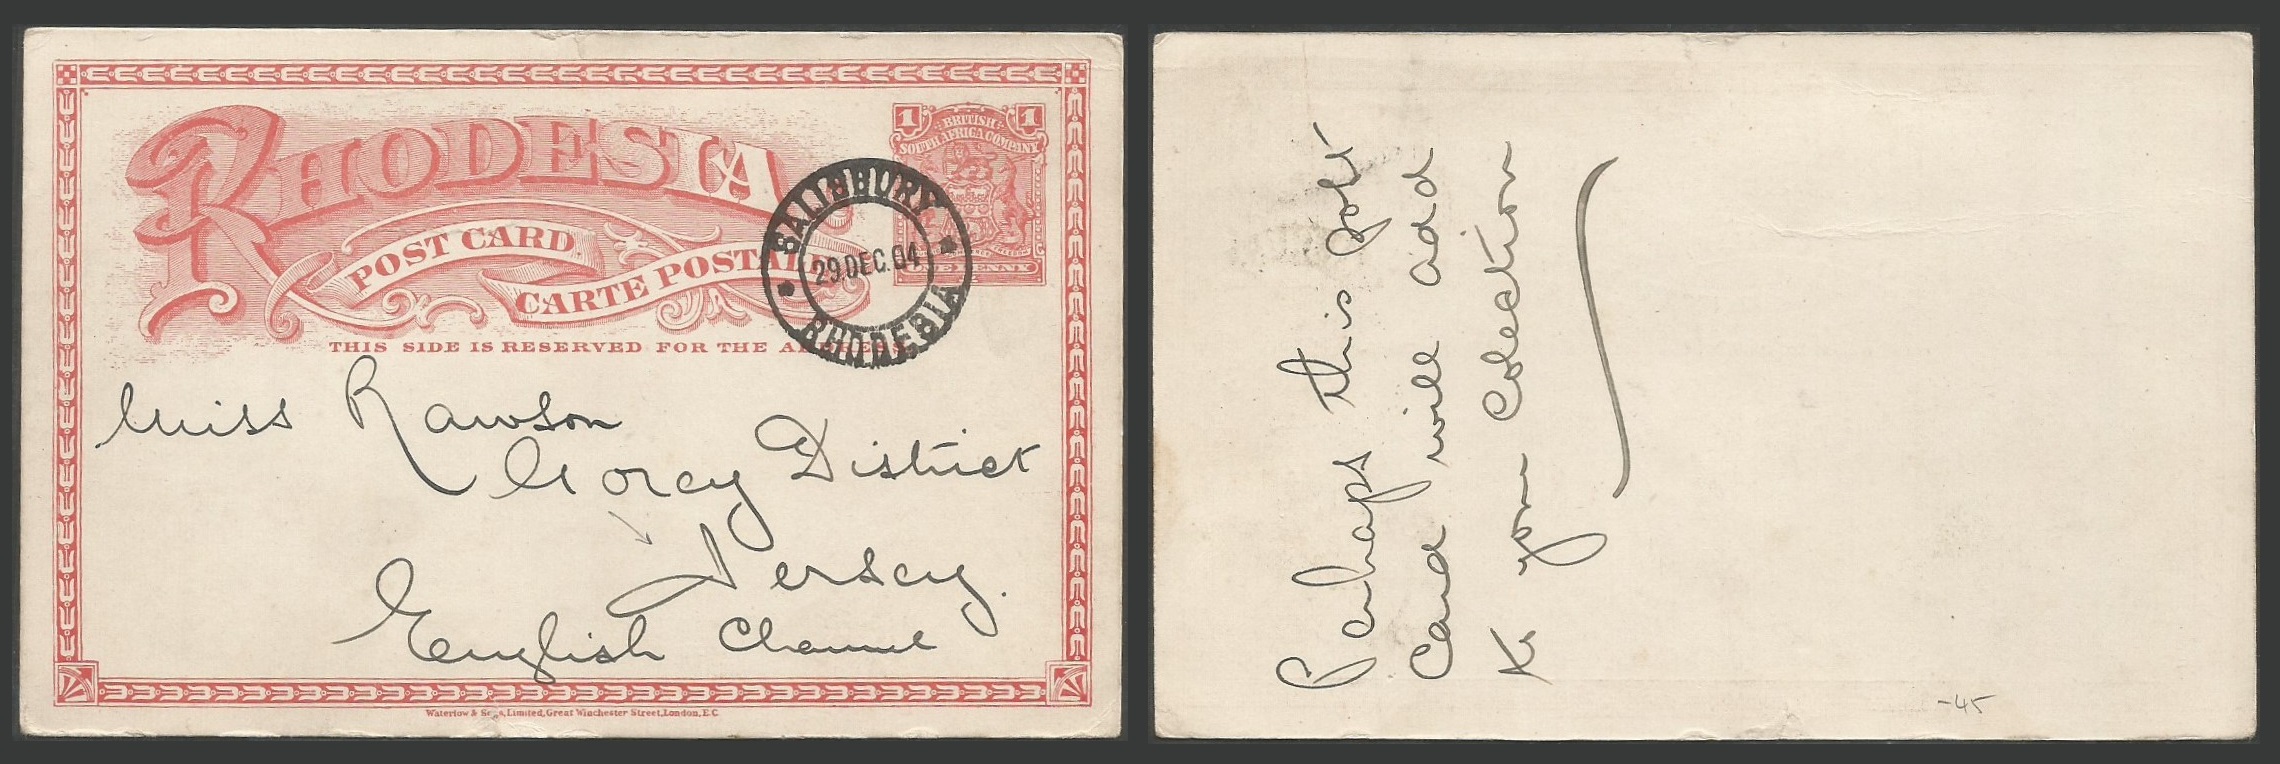 RHODESIA
POST CARD
CARTE POSTALE
1 BRITISH 1
SOUTH AFRICA COMPANY
ONE PENNY
SALISBURY
29 DEC. 04
RHODESIA
THIS SIDE IS RESERVED FOR THE ADDRESS
Miss Rawson
Gorey District
Jersey.
English Channel
Waterlow & Sons, Limited, Great Winchester Street, London, E.C.
Perhaps this post
Card will add
to your Colection
-45